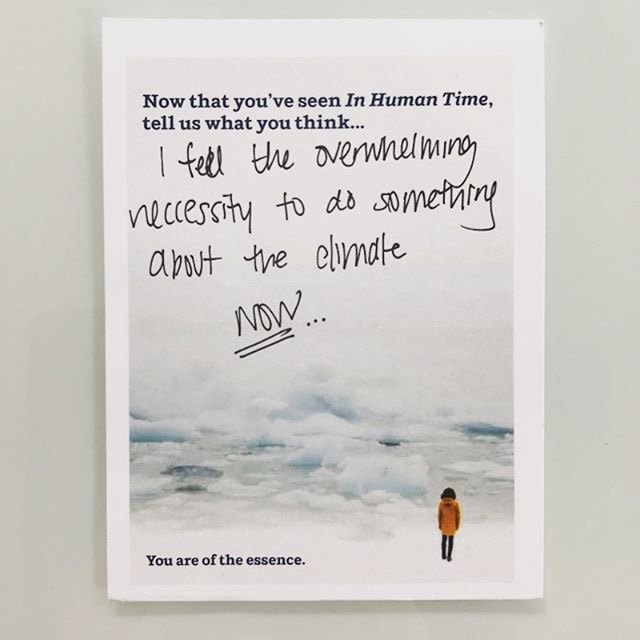 Now that you've seen In Human Time,
tell us what you think...
I feel the overwhelming
neccessity to do something
about the climate
NOW...
You are of the essence.